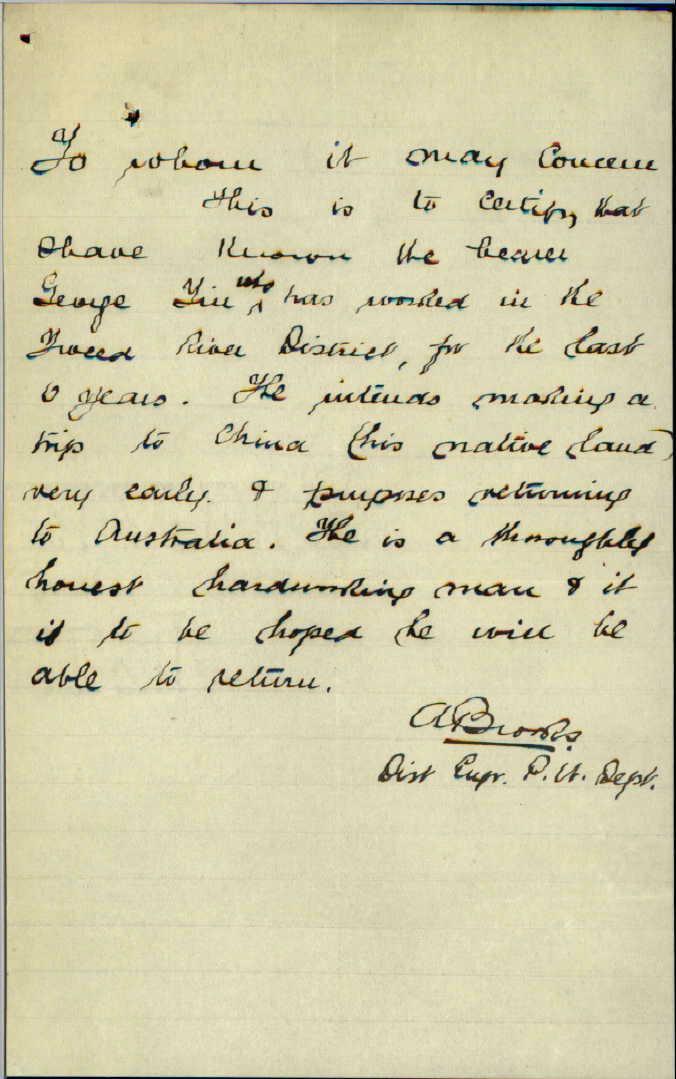 To whom it may Concern
This is to Certify, that
I have Known the bearer
George who has worked in the
Tweed River District, for the last
years. He intends making a
trip to China (his native land)
very early. & purposes returning
to Australia. He is a thoroughly
honest hardworking man & it
is to be hoped he will be
able to return.
A Brooks.
Dist Engr. P. W. Dept.